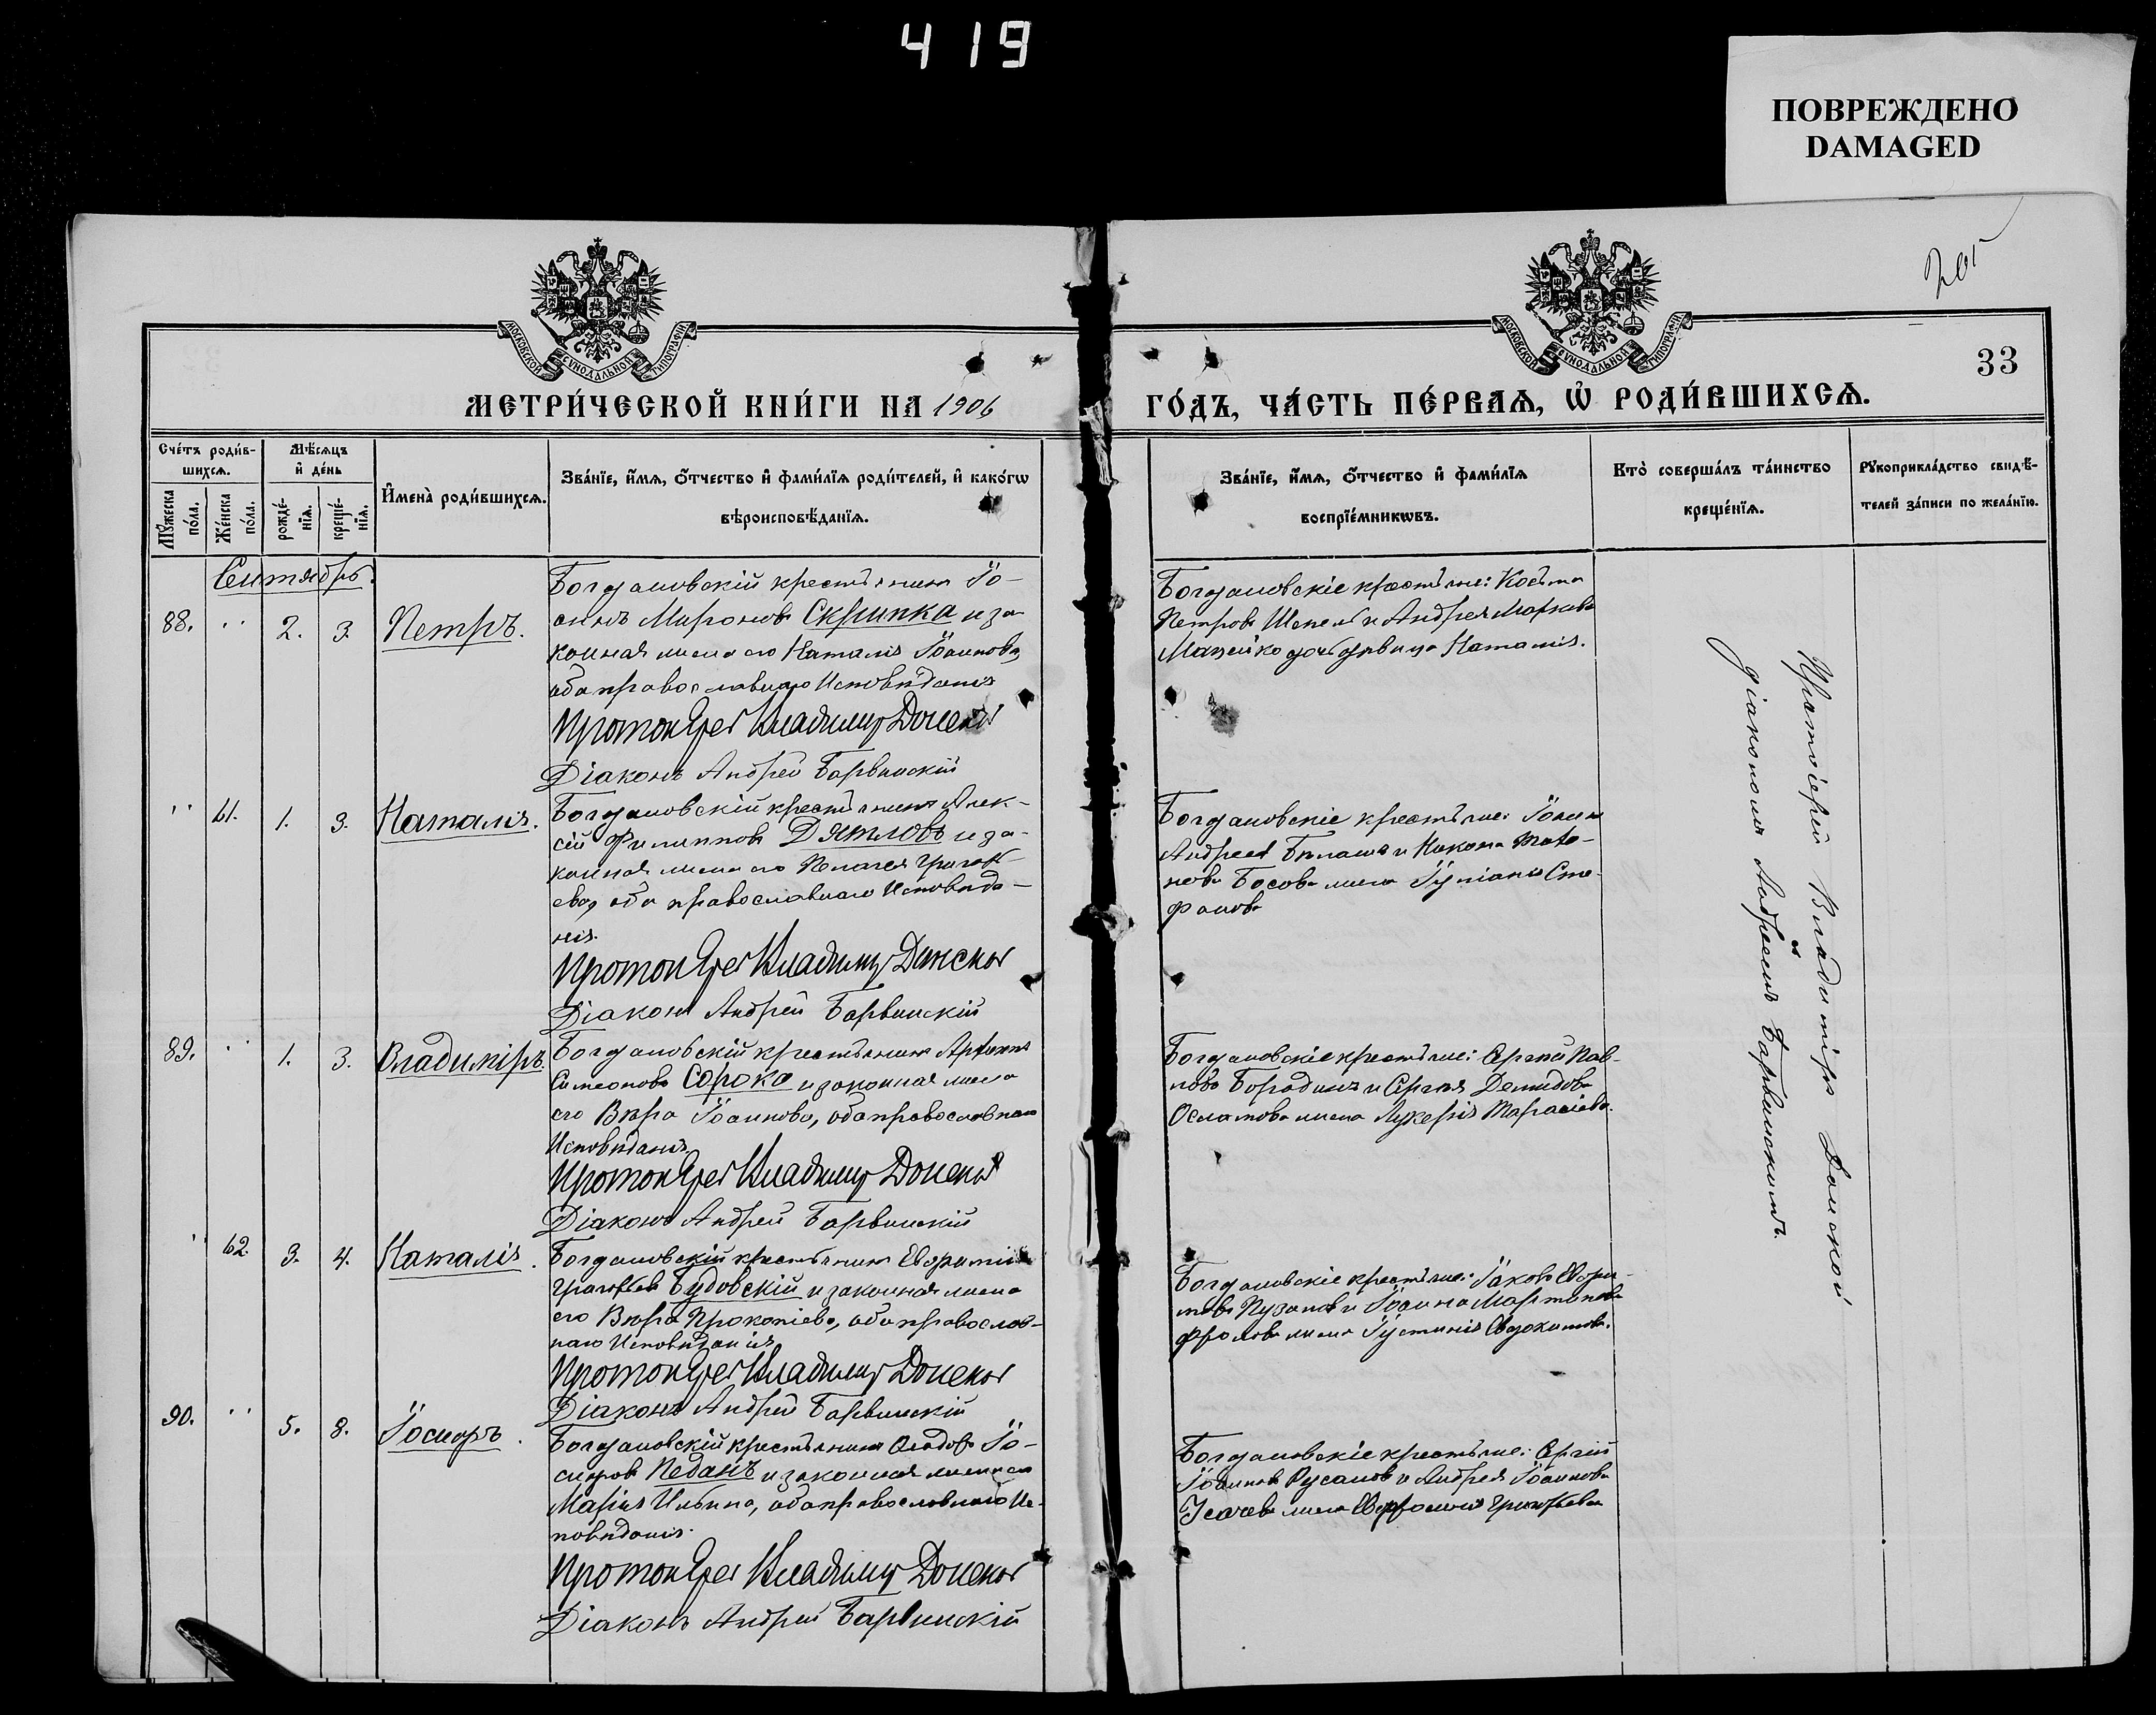 419
ПОВРЕЖДЕНО
DAMAGED
205
33
МОСКОВСКОЙ СѴНОДАЛЬНОЙ ТИПОГРАФІИ
МОСКОВСКОЙ СѴНОДАЛЬНОЙ ТИПОГРАФІИ
МЕТРИ́ЧЕСКОЙ КНИ́ГИ НА 1906
ГО́ДЪ, ЧА́СТЬ ПЕ́РВАѦ, Ѡ҆ РОДИ́ВШИХСѦ.
Сче́тъ роди́в-
шихсѧ.
Мѣ́сѧцъ
и҆ де́нь
Мꙋ́жеска
по́ла.
Же́нска
по́ла.
рожде́-
нїѧ.
креще́-
нїѧ.
И҆мена̀ роди́вшихсѧ.
Зва́нїе, и҆́мѧ, о҆́тчество и҆ фами́лїѧ роди́телей, и҆ како́гѡ
вѣроисповѣ́данїѧ.
Зва́нїе, и҆́мѧ, о҆́тчество и҆ фами́лїѧ
воспрїе́мникѡвъ.
Кто̀ соверша́лъ та́инство
креще́нїѧ.
Рꙋкоприкла́дство свидѣ́-
телей за́писи по жела́нїю.
Сентябрь.
88. " 2. 3. Петръ.
Богдановскій крестьянинъ Іо-
аннъ Мироновъ Скрипка и за-
конная жена его Наталія Іоаннова,
оба православнаго Исповѣданія
Протоіерей Владимир Донской
Діаконъ Андрей Барвинскій
Богдановскіе крестьяне: Косьма
Петровъ и Андрея Маркова
дочь дѣвица Наталія.
" 61. 1. 3. Наталія.
Богдановскій крестьянинъ Алек-
сій Филипповъ Дятловъ и за-
конная жена его Пелагея Григорь-
ева, оба православнаго Исповѣда-
нія.
Протоіерей Владимир Донской
Діаконъ Андрей Барвинскій
Богдановскіе крестьяне: Іоаннъ
Андреевъ Билашъ и Никона
Босова жена Іуліанія Сте-
фанова
89. " 1. 3. Владиміръ.
Богдановскій крестьянинъ
Симеоновъ Сорока и законная жена
его Вѣра Іоаннова, оба православнаго
Исповѣданія
Протоіерей Владимир Донской
Діаконъ Андрей Барвинскій
Богдановскіе крестьяне: Сергій Пав-
ловъ Бородинъ и Сергея Демидова
жена Лукерія Тарасіева.
" 62. 3. 4. Наталія.
Богдановскій крестьянинъ Евфимій
Григорьевъ Будовскій и законная жена
его Вѣра Прокопіева, оба православ-
наго Исповѣданія
Протоіерей Владимир Донской
Діаконъ Андрей Барвинскій
Богдановскіе крестьяне: Іаковъ Евфи-
мовъ Пузановъ и Іоанна Мартинова
Фролова жена Іустинія Евдокимова.
90. " 5. 8. Іосифъ.
Богдановскій крестьянинъ Іо-
сифовъ Педанъ и законная жена его
Марія Ильина, оба православнаго Ис-
повѣданія.
Протоіерей Владимир Донской
Діаконъ Андрей Барвинскій
Богдановскіе крестьяне: Сергій
Іоанновъ Русановъ и Андрея Іоаннова
Усачева жена Евфросинія Григорьева
Протоіерей Владиміръ Донской
съ
діакономъ Андреемъ Барвинскимъ.